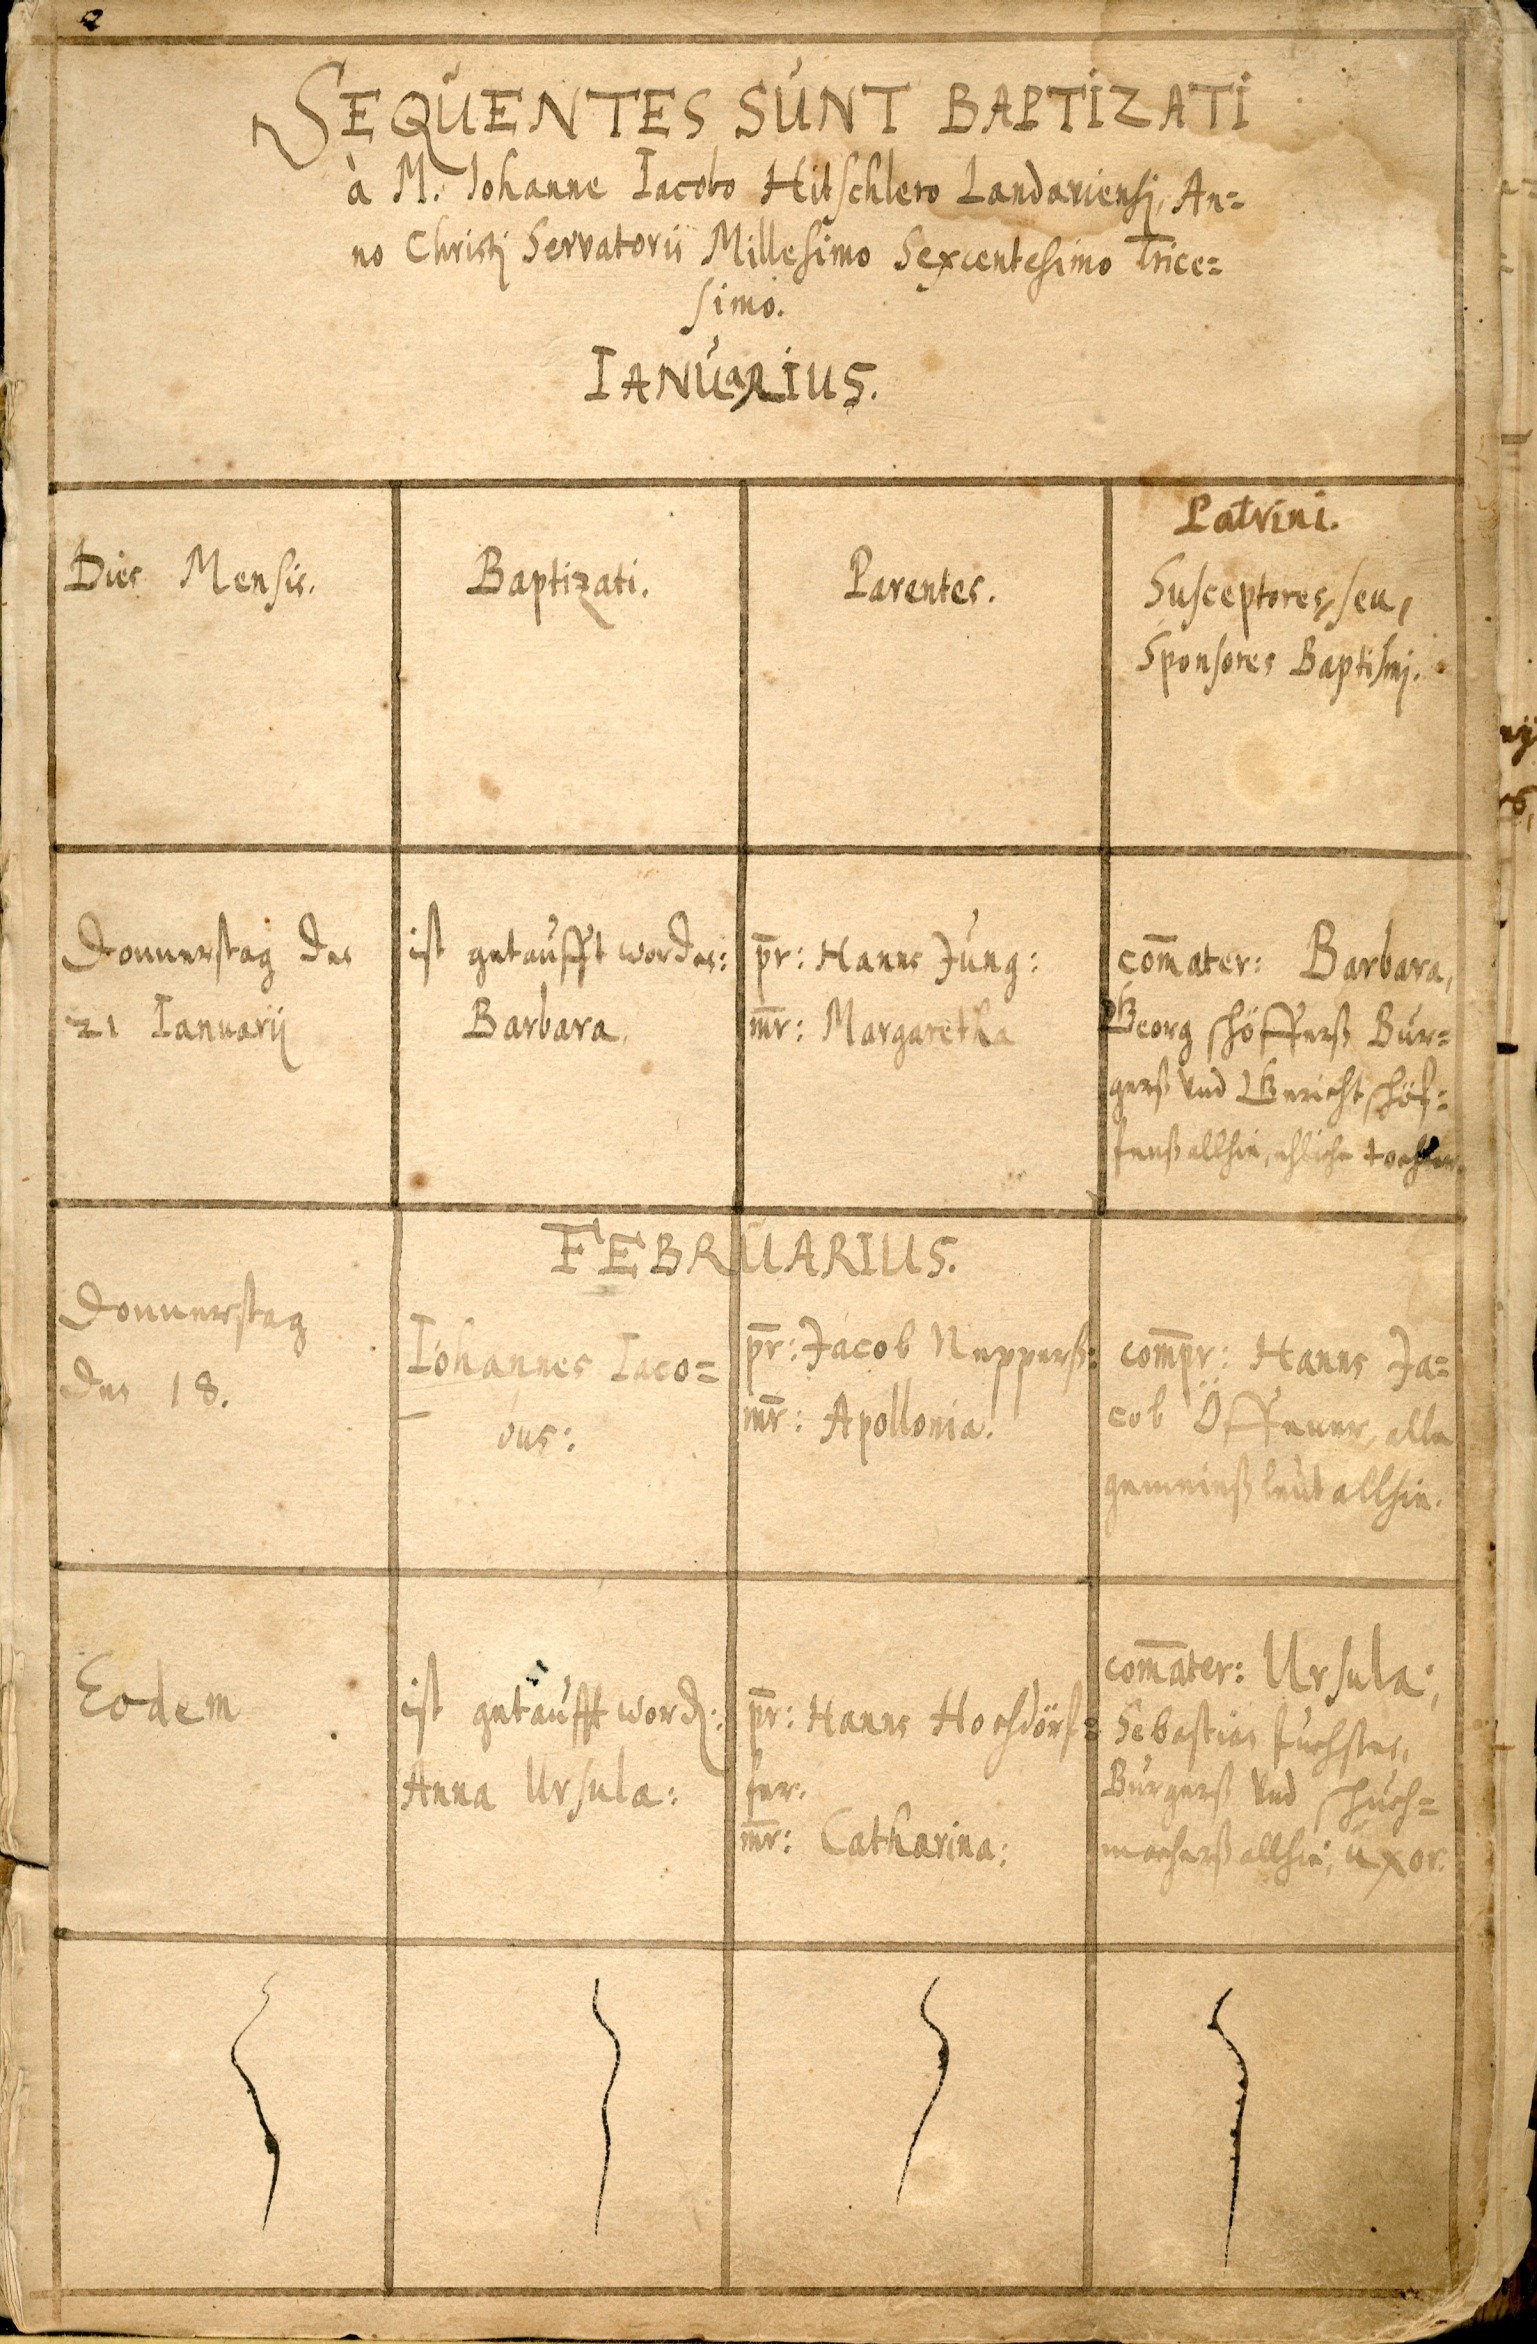 2
SEQUENTES SUNT BAPTIZATI
à M. Iohanne Iacobo Hitschlero Landaviensi, An=
no Christi Servatoris Millesimo Sexcentesimo Trice=
simo.
IANUARIUS.
Dies Mensis.
Baptizati.
Parentes.
Patrini.
Susceptores, seu,
Sponsores Baptismj.
Donnerstag den
21 Ianuarij
ist getaufft worden:
Barbara.
pr: Hanns Jung:
mr: Margaretha
comater: Barbara,
Georg Schöfferß Bur=
gerß Vnd Gericht schöf=
fenß allhie, ehliche tochter.
FEBRUARIUS.
Donnerstag
den 18.
Iohannes Iaco=
bus:
pr: Jacob Nepperß:
mr: Apollonia.
compr: Hanns Ja=
cob Öffener, alle
gemeinß leut allhie.
Eodem
ist getaufft word:
Anna Ursula:
pr: Hanns Hochdörf=
fer.
mr: Catharina:
comater: Ursula,
Sebastian fuchsen,
Burgerß Vnd schuch=
macherß allhie, uxor.